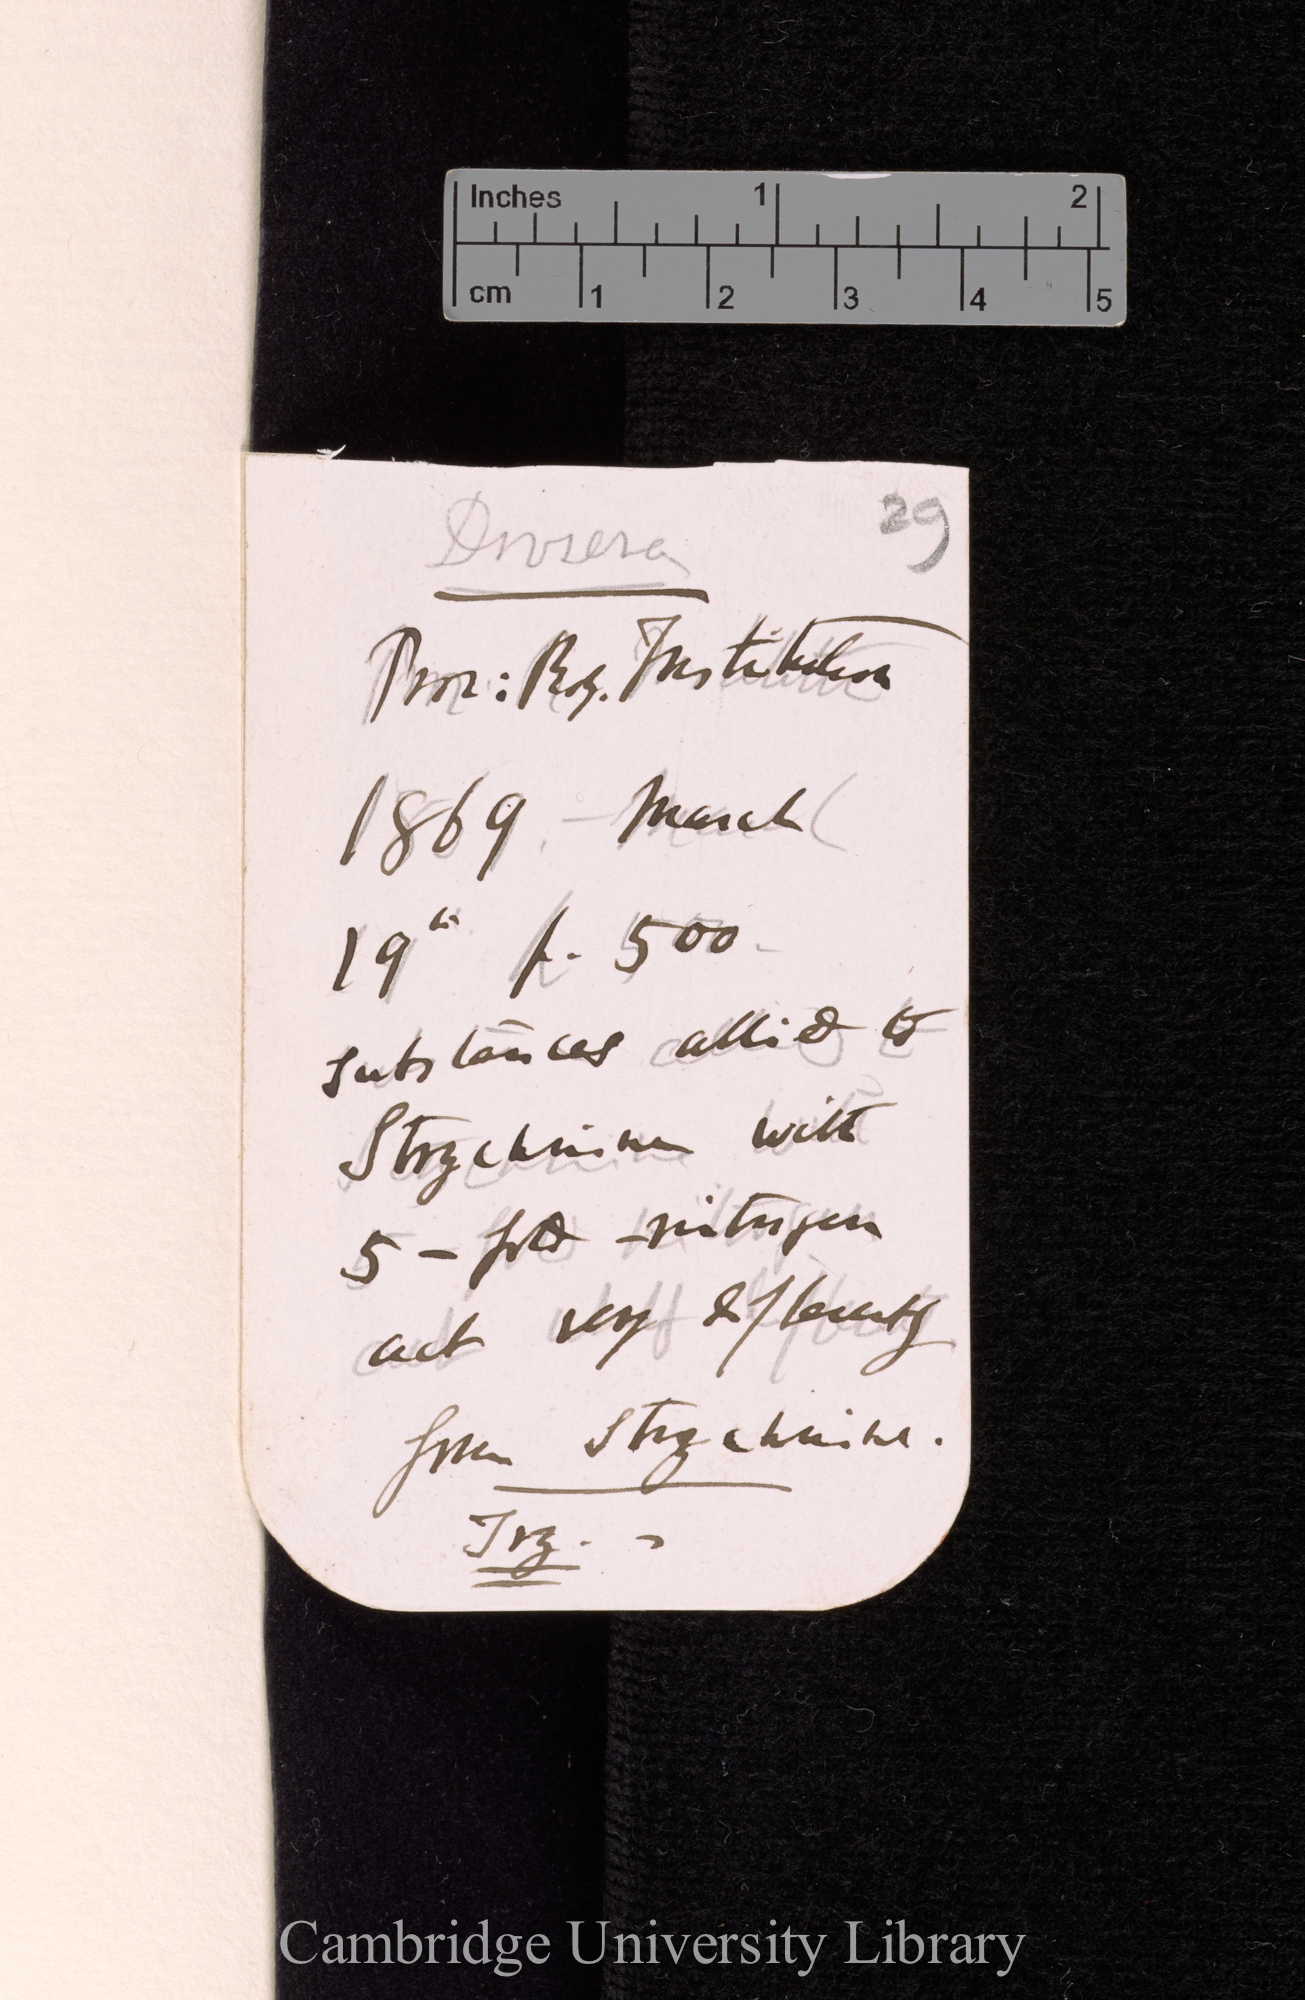 Inches 1 2
cm 1 2 3 4 5
29
Drosera
Proc: Roy. Institution
1869. – March
19th p. 500
substances allied to
Strychnine with
5 – fold – nitrogen
act very differently
from Strychnine.
Try. –
Cambridge University Library